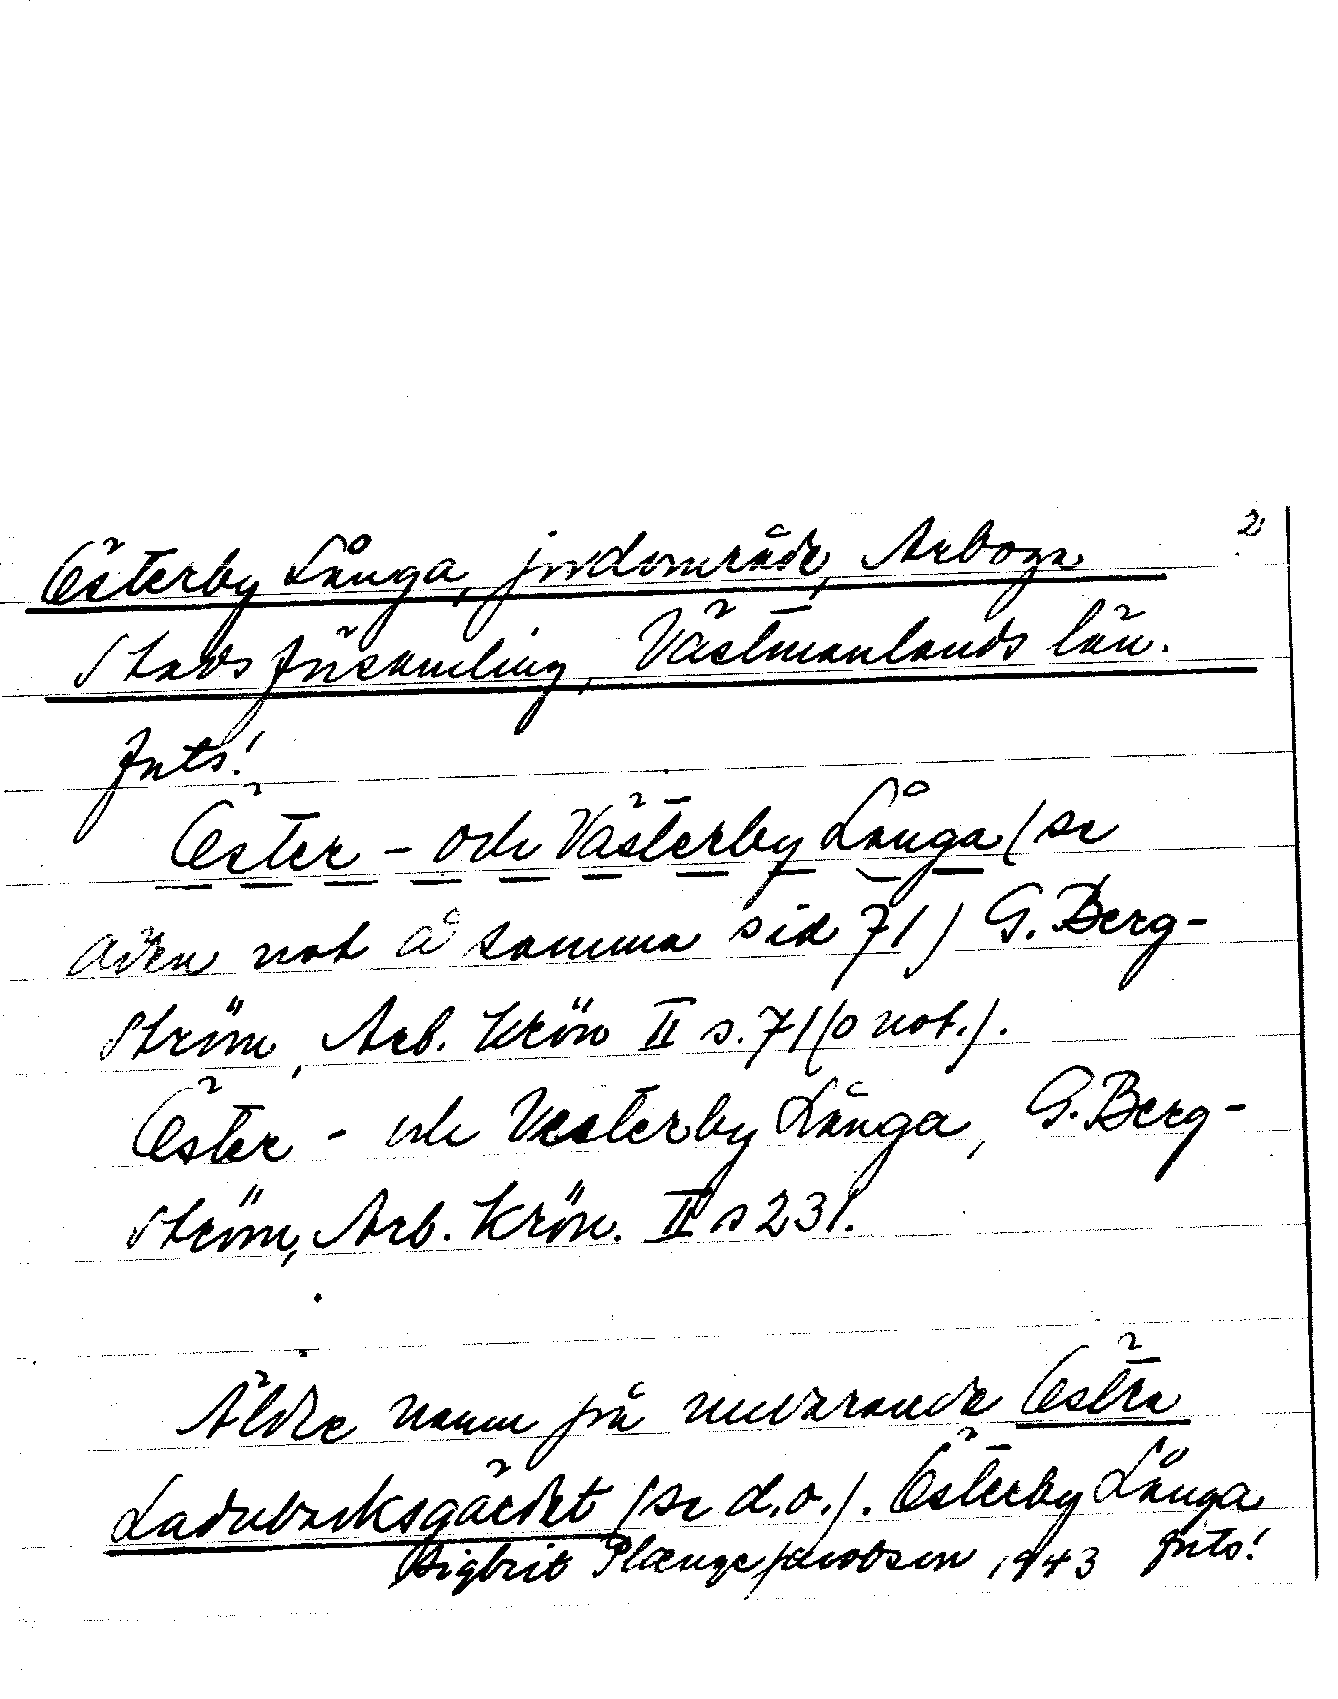 2
Österby Långa, jordområde, Arboga
Stadsförsamling, Västmanlands län.
Forts!
Öster - och Västerby Långa (se
även not å samma sid 71) G. Berg-
ström, Arb. Krön II s. 71 (o not.).
Öster - och Vesterby Långa, G. Berg-
ström, Arb. Krön. II s 231.
Äldre namn på nuvarande Östra
Ladubacksgärdet (se d.o.). Österby Långa
Sigbrit Plænge Jacobson 1943 Forts!